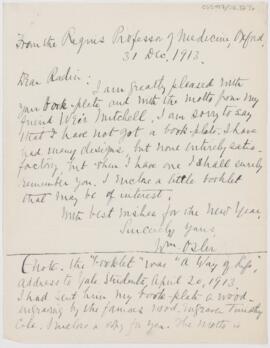 From the Regius Professor of Medicine, Oxford.
31 Dec. 1913.
Dear Radin:
I am greatly pleased with
your book-plate and with the motto from my
friend Weir Mitchell. I am sorry to say
that I have not got a book-plate. I have
had many designs, but none entirely satis-
factory, but when I have one I shall surely
remember you. I inclose a little booklet
that may be of interest.
With best wishes for the New Year,
Sincerely yours,
Wm Osler.
(Note. The "booklet" was "A Way of Life",
address to Yale Students, April 20, 1913.
I had sent him my book-plate a wood-
engraving by the famous wood engraver Timothy
Cole. I inclose a copy for you. The motto is